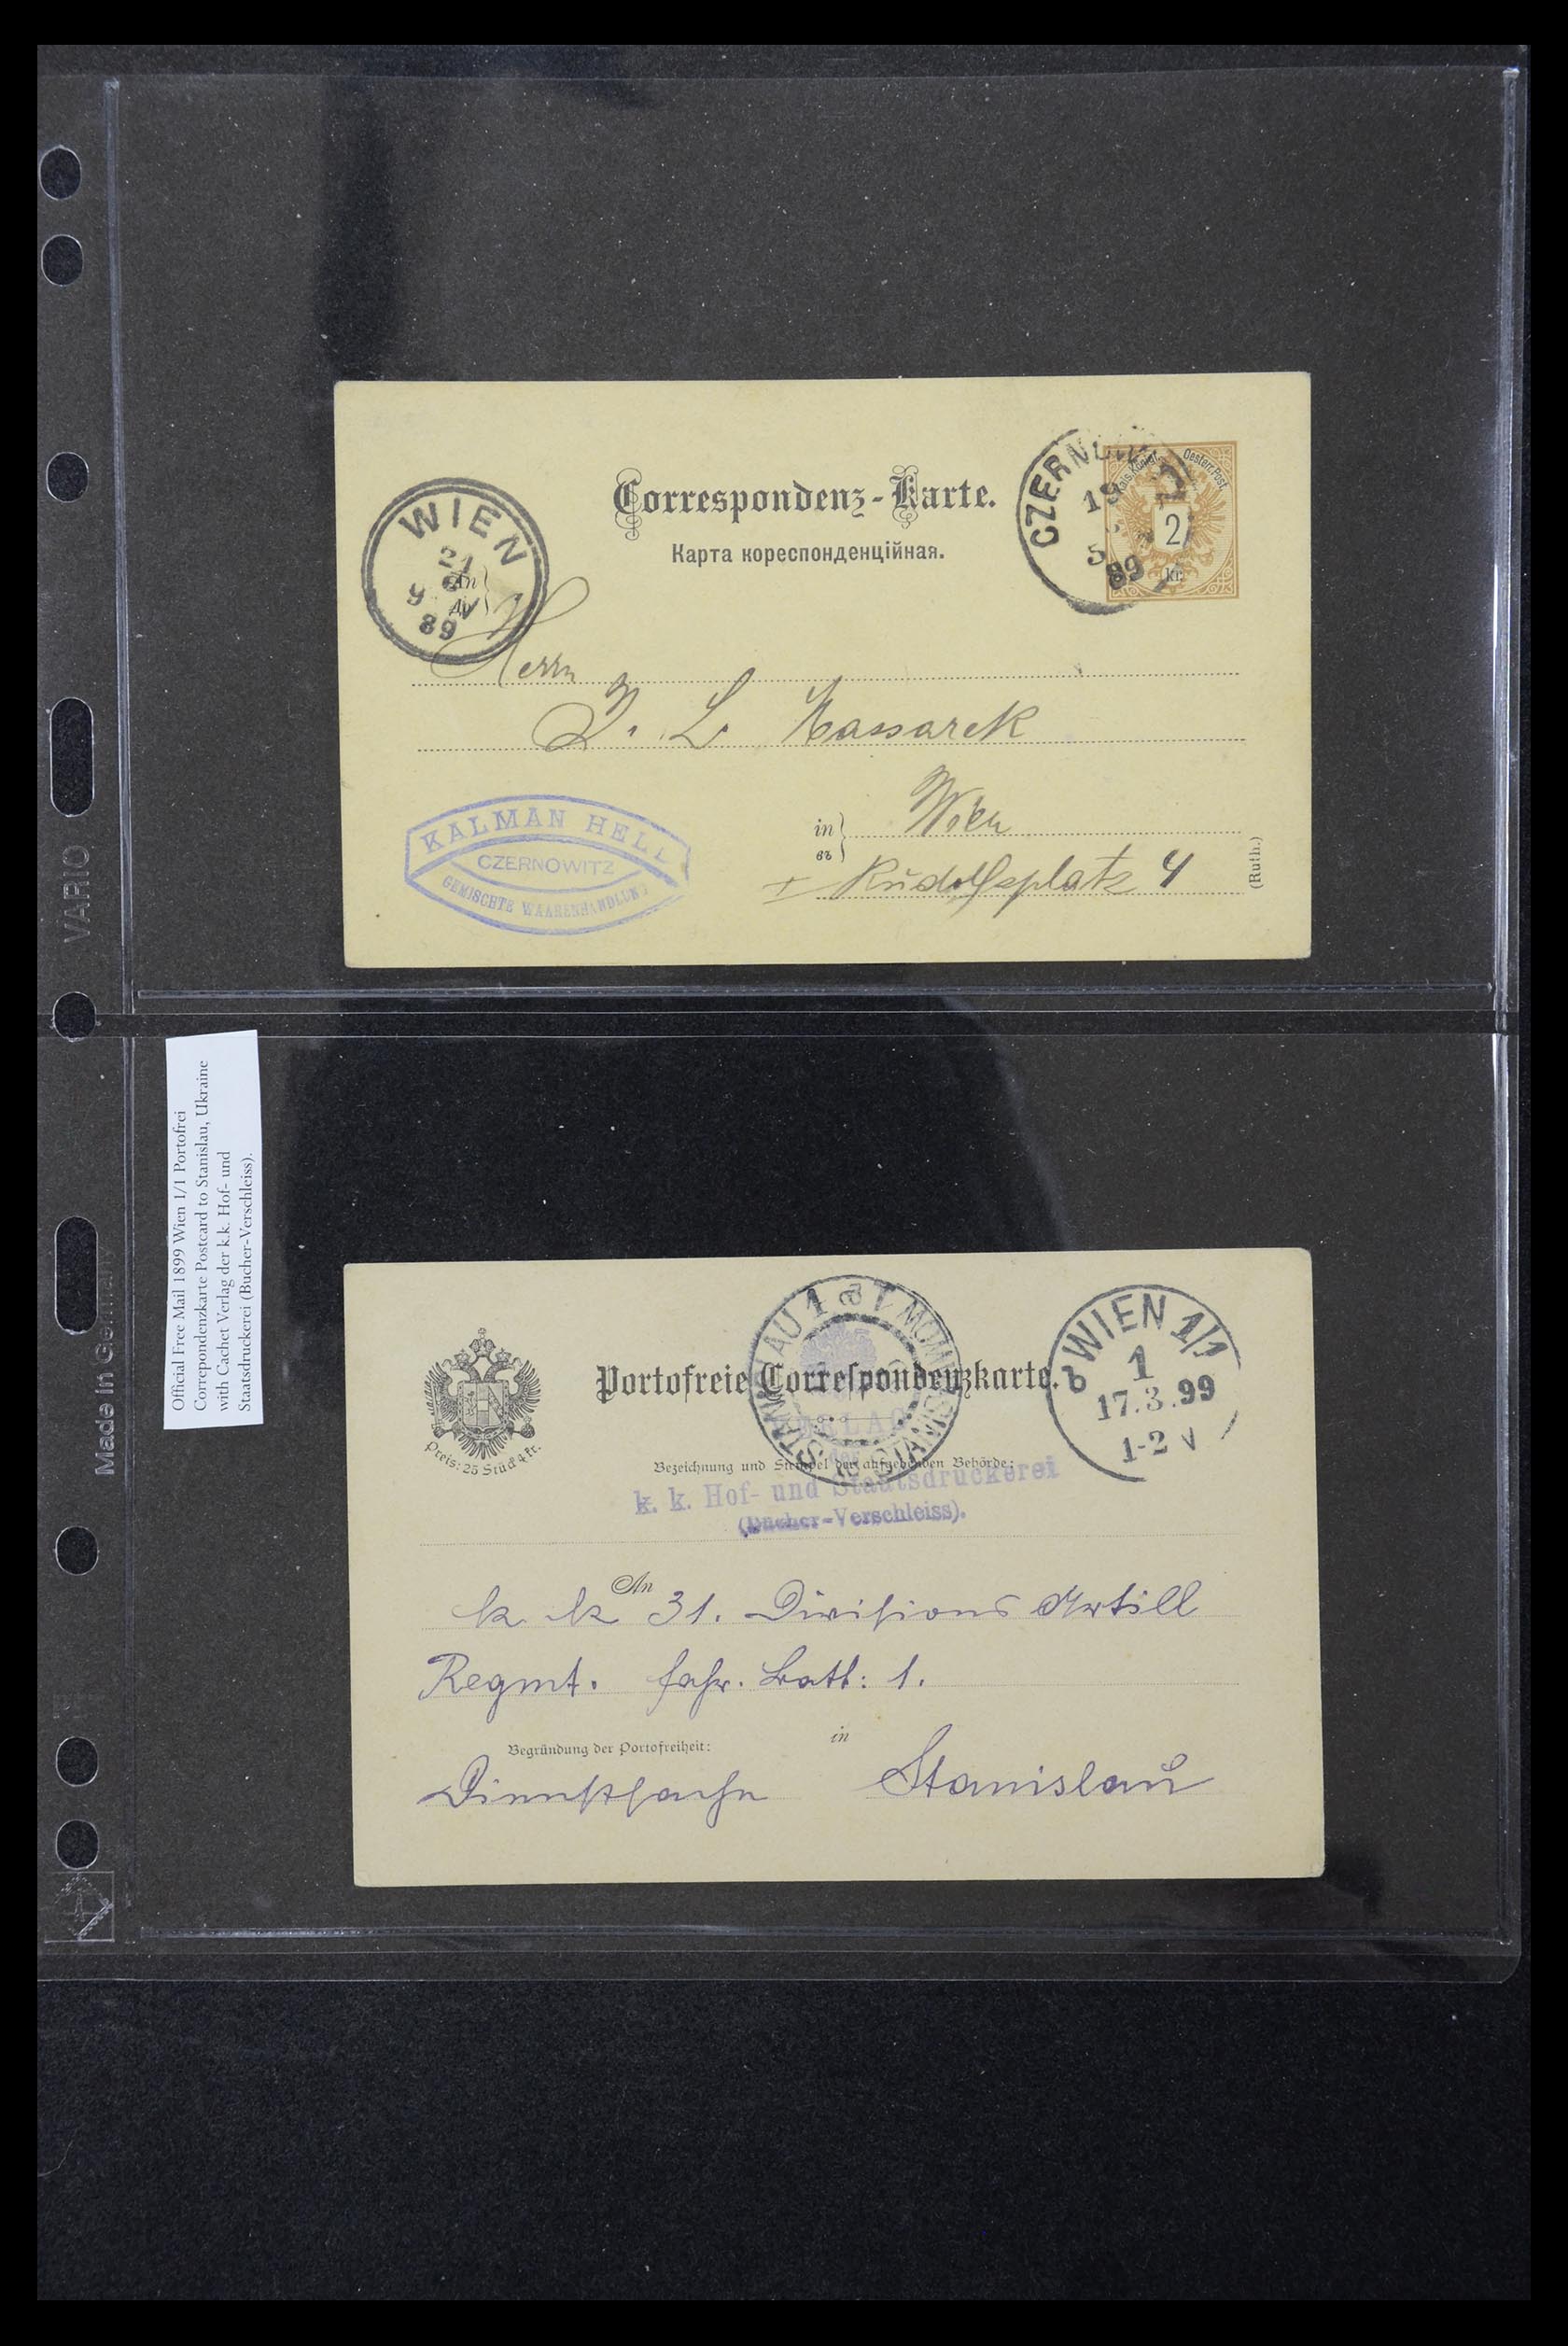 Correspondenz-Karte.
Карта кореспонденційная.
WIEN
21
9
89
An
CZERNOW
19
5
89
Kais. Königl. Oesterr. Post.
2
kr.
Herrn
L. Massarek
in
Wien
вь
I Rudolfsplatz 4
(Ruth.)
KALMAN HELL
CZERNOWITZ
GEMISCHTE WAARENHANDLUNG
VARIO
Made in Germany
Official Free Mail 1899 Wien 1/1 Portofrei
Correpondenzkarte Postcard to Stanislau, Ukraine
with Cachet Verlag der k.k. Hof- und
Staatsdruckerei (Bucher-Verschleiss).
Preis: 25 Stück 4 kr.
Portofreie Correspondenzkarte.
WIEN 1/1
1
17.3.99
1-2 V
VERLAG
der
Bezeichnung und Stempel der aufgebenden Behörde:
k. k. Hof- und Staatsdruckerei
(Bücher-Verschleiss).
An
k k 31. Divisions Artill
Regmt. fahr. Batt: 1.
Begründung der Portofreiheit:
in
Dienstsache Stanislau